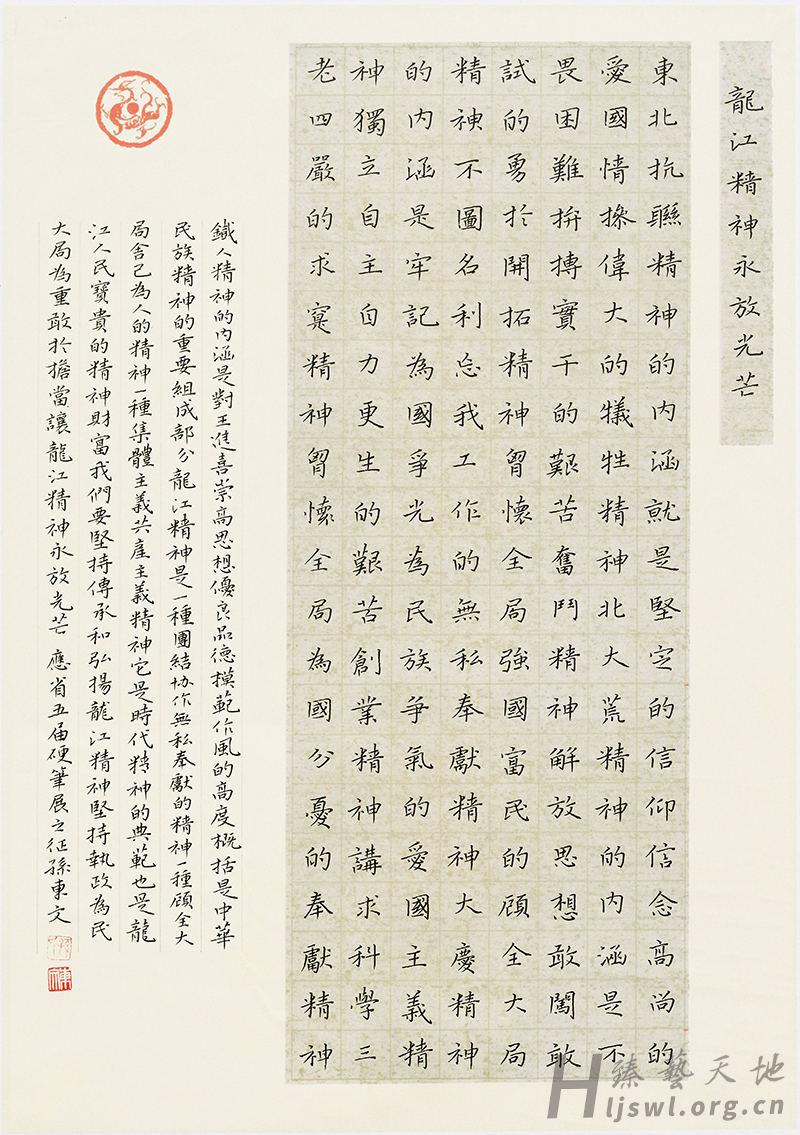 龍江精神永放光芒
東北抗聯精神的内涵就是堅定的信仰信念高尚的
愛國情操偉大的犧牲精神北大荒精神的内涵是不
畏困難拚搏實干的艱苦奮鬥精神解放思想敢闖敢
試的勇於開拓精神胷懷全局強國富民的顧全大局
精神不圖名利忘我工作的無私奉獻精神大慶精神
的内涵是牢記為國爭光為民族爭氣的愛國主義精
神獨立自主自力更生的艱苦創業精神講求科學三
老四嚴的求寔精神胷懷全局為國分憂的奉獻精神
鐵人精神的内涵是對王進喜崇高思想優良品德模範作風的高度概括是中華
民族精神的重要組成部分龍江精神是一種團結協作無私奉獻的精神一種顧全大
局舍己為人的精神一種集體主義共産主義精神它是時代精神的典範也是龍
江人民寶貴的精神財富我們要堅持傳承和弘揚龍江精神堅持執政為民
大局為重敢於擔當讓龍江精神永放光芒 應省五届硬筆展之征孫東文
臻藝天地
ljswl.org.cn